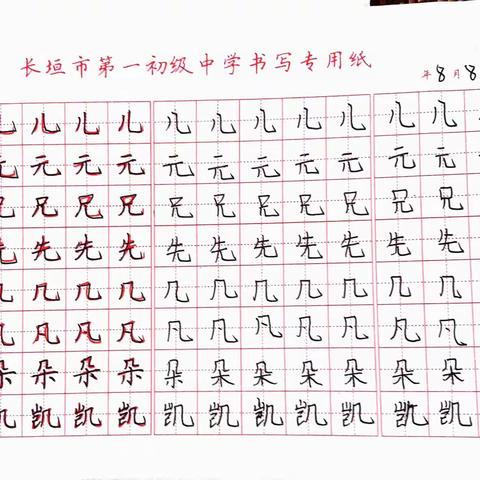 长垣市第一初级中学书写专用纸
年8月8
儿儿儿儿儿儿儿儿儿儿儿
元元元元元元元元元元元
兄兄兄兄兄兄兄兄兄兄兄
先先先先先先先先先先先
几几几几几几几几几几几
凡凡凡凡凡凡凡凡凡凡凡
朵朵朵朵朵朵朵朵朵朵朵
凯凯凯凯凯凯凯凯凯凯凯